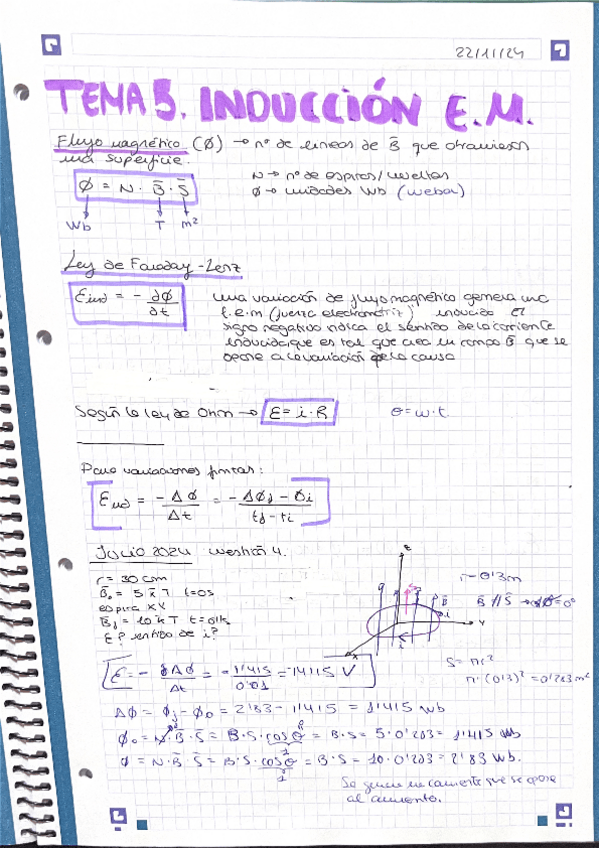 22/11/24
TEMA 5. INDUCCIÓN E.M.
Flujo magnético (Ø) → nº de lineas de B̄ que atraviesan
una superficie.
Ø = N · B̄ · S̄
N → nº de espiras/vueltas
Ø → unidades Wb (weber)
Wb T m²
Ley de Faraday-Lenz
Eind = - ∂Ø/∂t
una variación de flujo magnético genera una
f.e.m (fuerza electromotriz) inducida el
signo negativo indica el sentido de la corriente
inducida, que es tal que crea un campo B̄ que se
opone a la variación que la causa
Según la ley de Ohm → E = i · R
Θ = w · t.
Para variaciones finitas:
Eind = - ΔØ/Δt = - ΔØf - Øi / tf - ti
Julio 2024 cuestión 4.
r = 30 cm
B̄o = 5 k̄ T t=0s
espira XY
B̄f = 10 k T
E? sentido de i?
z
S̄
B̄
i
Y
x
r = 0'3m
B̄ // S̄
S = πr²
π · (0'3)² = 0'283 m²
ΔØ = Øf - Øo = 2'83 - 1'415 = 1'415 Wb
Øo = N · B̄ · S̄ = B · S · cos θ = B · S = 5 · 0'283 = 1'415 Wb
Ø = N · B̄ · S̄ = B · S · cos θ = B · S = 10 · 0'283 = 2'83 Wb.
Se genera una corriente que se opone
al aumento.